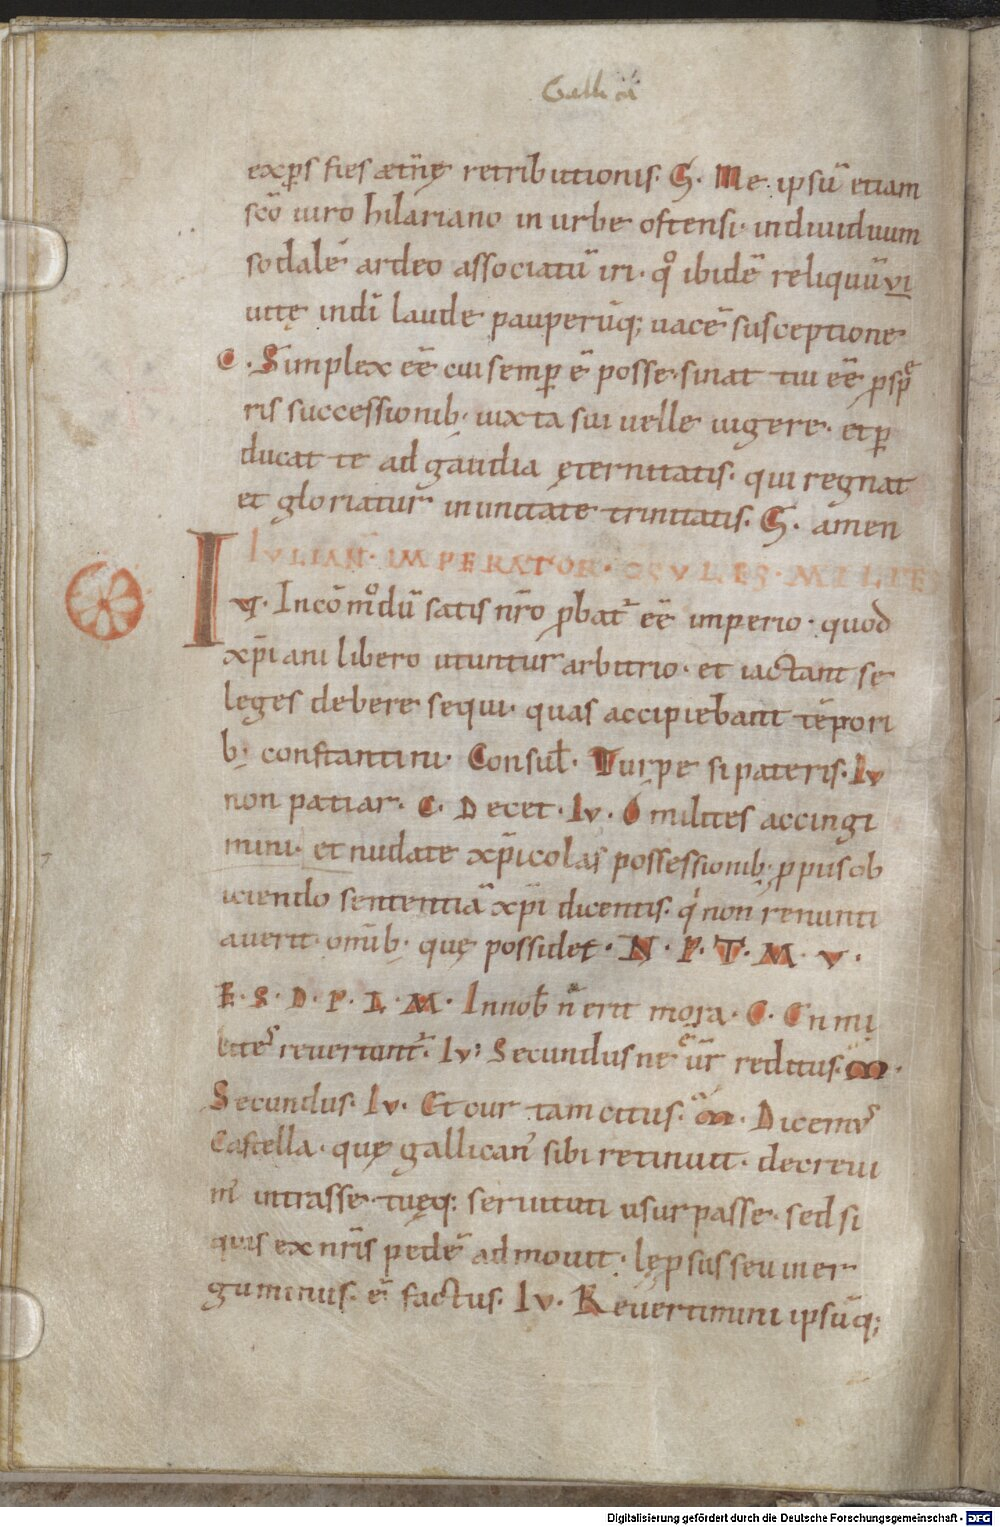 Gallicā
exꝑs fies ætn̄ę retributionis. G. Me ipsū etiam
sc̄o uiro hilariano in urbe ostensi. indiuiduum
sodalē ardeo associatū iri. qͦ ibidē reliquū vi
utę indī laude pauperūq; uacē susceptione
C. Simplex eē̄ cui semꝑ ē posse. sinat tui eē̄ ꝓspe
ris successionib; iuxta sui uelle uigere. et ꝑ
ducat te ad gaudia ęternitatis. qui regnat
et gloriatur in unitate trinitatis. G. amen
IVLIAN. IMPERATOR. CSVLES. MILITES
IV. Incōmodū satis nr̄o ꝓbat᷑ eē̄ imperio. quod
xp̄iani libero utuntur arbitrio. et iactant se
leges debere sequi. quas accipiebant tēpori
b; constantini. Consul̄. Turpe si pateris. Iv
non patiar. C. Decet. Iv. O milites accingi
mini. et nudate xp̄icolas possessionib; ꝓpus ob
iciendo sententiā xp̄i dicentis. qͥ non renunti
auerit omīb; quę possidet. N. P. T. M. V.
E. S. D. P. I. M. In nob̄ n̄ erit mora. C. En mi
lites reuertunt᷑. Iv. Secundus ne ē ur̄ reditus. M.
Secundus. Iv. Et cur tam citus. M. Dicemꝰ
Castella. quę gallican̄ sibi retinuit. decreui
mꝰ intrasse. tuęq; seruituti usurpasse. sed si
quis ex nr̄is pedē admouit. lępsus seu iner
guminus. ē factus. Iv. Reuertimini ipsūq;
Digitalisierung gefördert durch die Deutsche Forschungsgemeinschaft - DFG